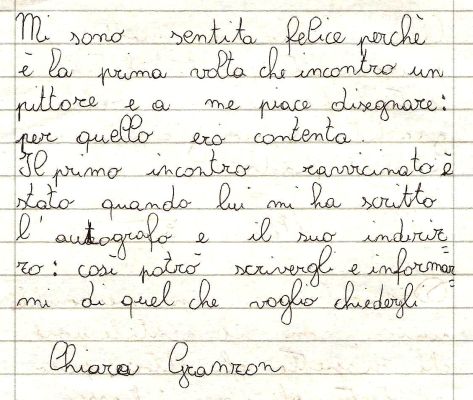 Mi sono sentita felice perchè
è la prima volta che incontro un
pittore e a me piace disegnare:
per quello ero contenta.
Il primo incontro ravvicinato è
stato quando lui mi ha scritto
l'autografo e il suo indiriz=
zo: così potrò scrivergli e informar=
mi di quel che voglio chiedergli
Chiara Granzon